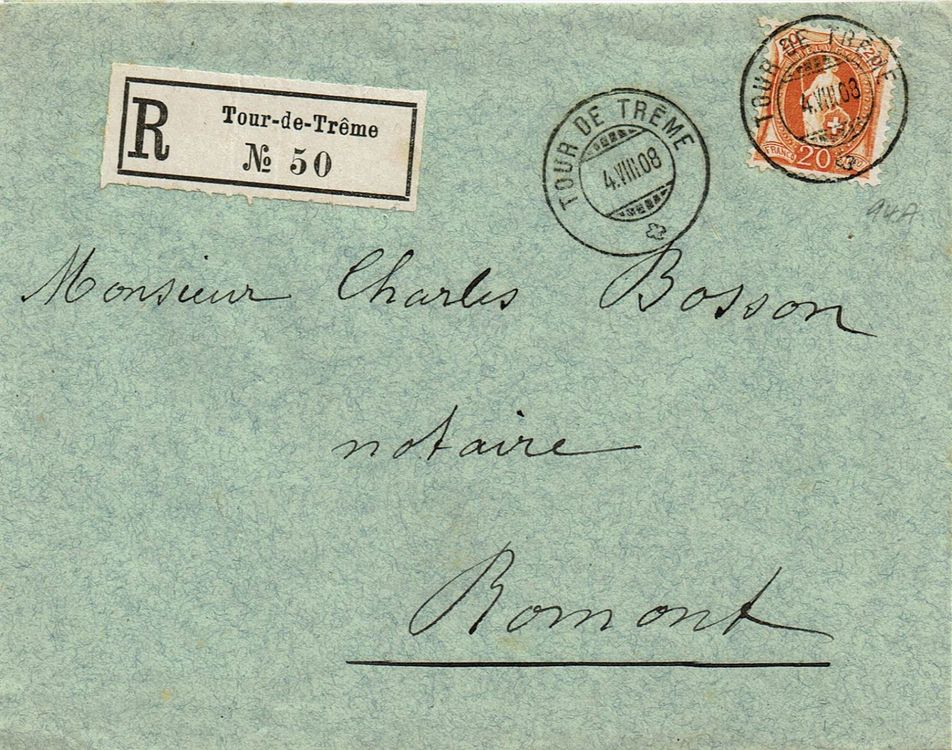 R
Tour-de-Trême
№ 50
TOUR DE TRÊME
4.VIII.08
TOUR DE TRÊME
4.VIII.08
20
20
FRANCO 20
Monsieur Charles Bosson
notaire
Romont